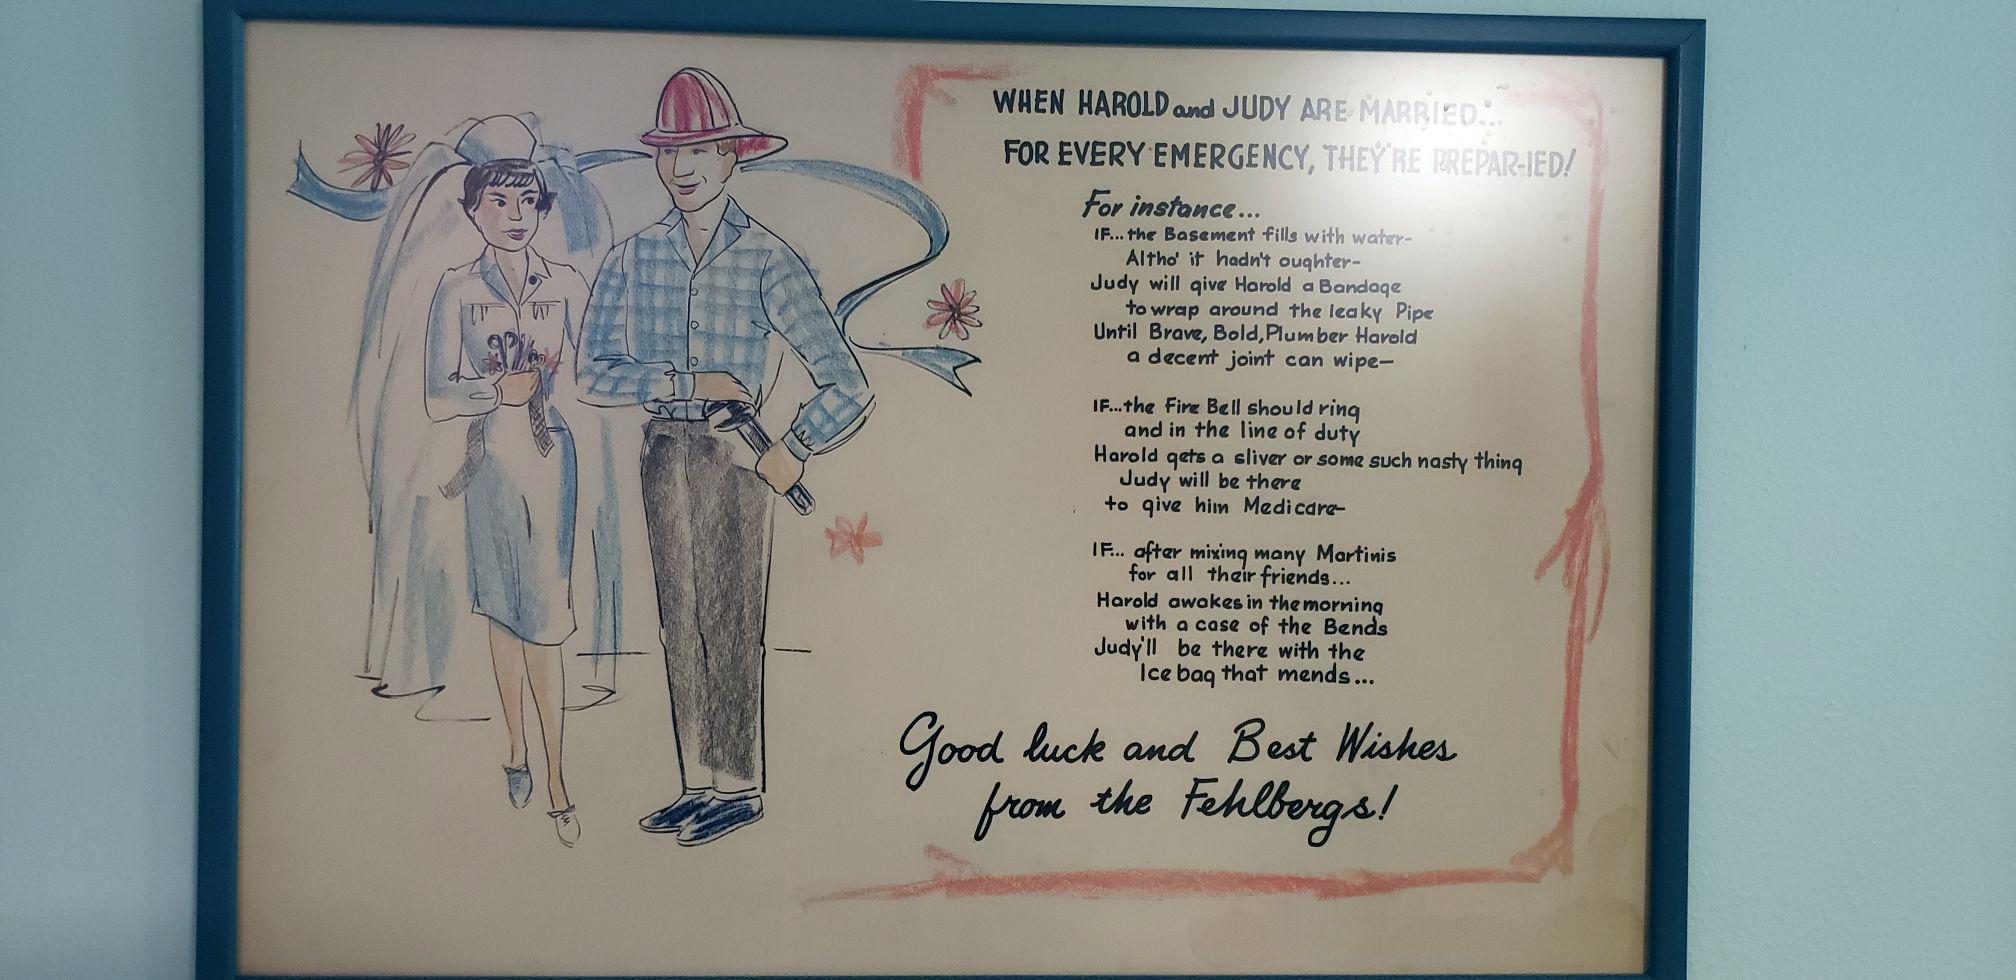 WHEN HAROLD and JUDY ARE MARRIED...
FOR EVERY EMERGENCY, THEY'RE PREPAR-IED!
For instance...
IF...the Basement fills with water-
Altho' it hadn't oughter-
Judy will give Harold a Bandage
to wrap around the leaky Pipe
Until Brave, Bold, Plumber Harold
a decent joint can wipe-
IF...the Fire Bell should ring
and in the line of duty
Harold gets a sliver or some such nasty thing
Judy will be there
to give him Medicare-
IF... after mixing many Martinis
for all their friends...
Harold awakes in the morning
with a case of the Bends
Judy'll be there with the
Ice bag that mends...
Good luck and Best Wishes
from the Fehlbergs!